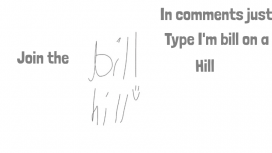 In comments just
Type I'm bill on a
Hill
Join the
bill
hill